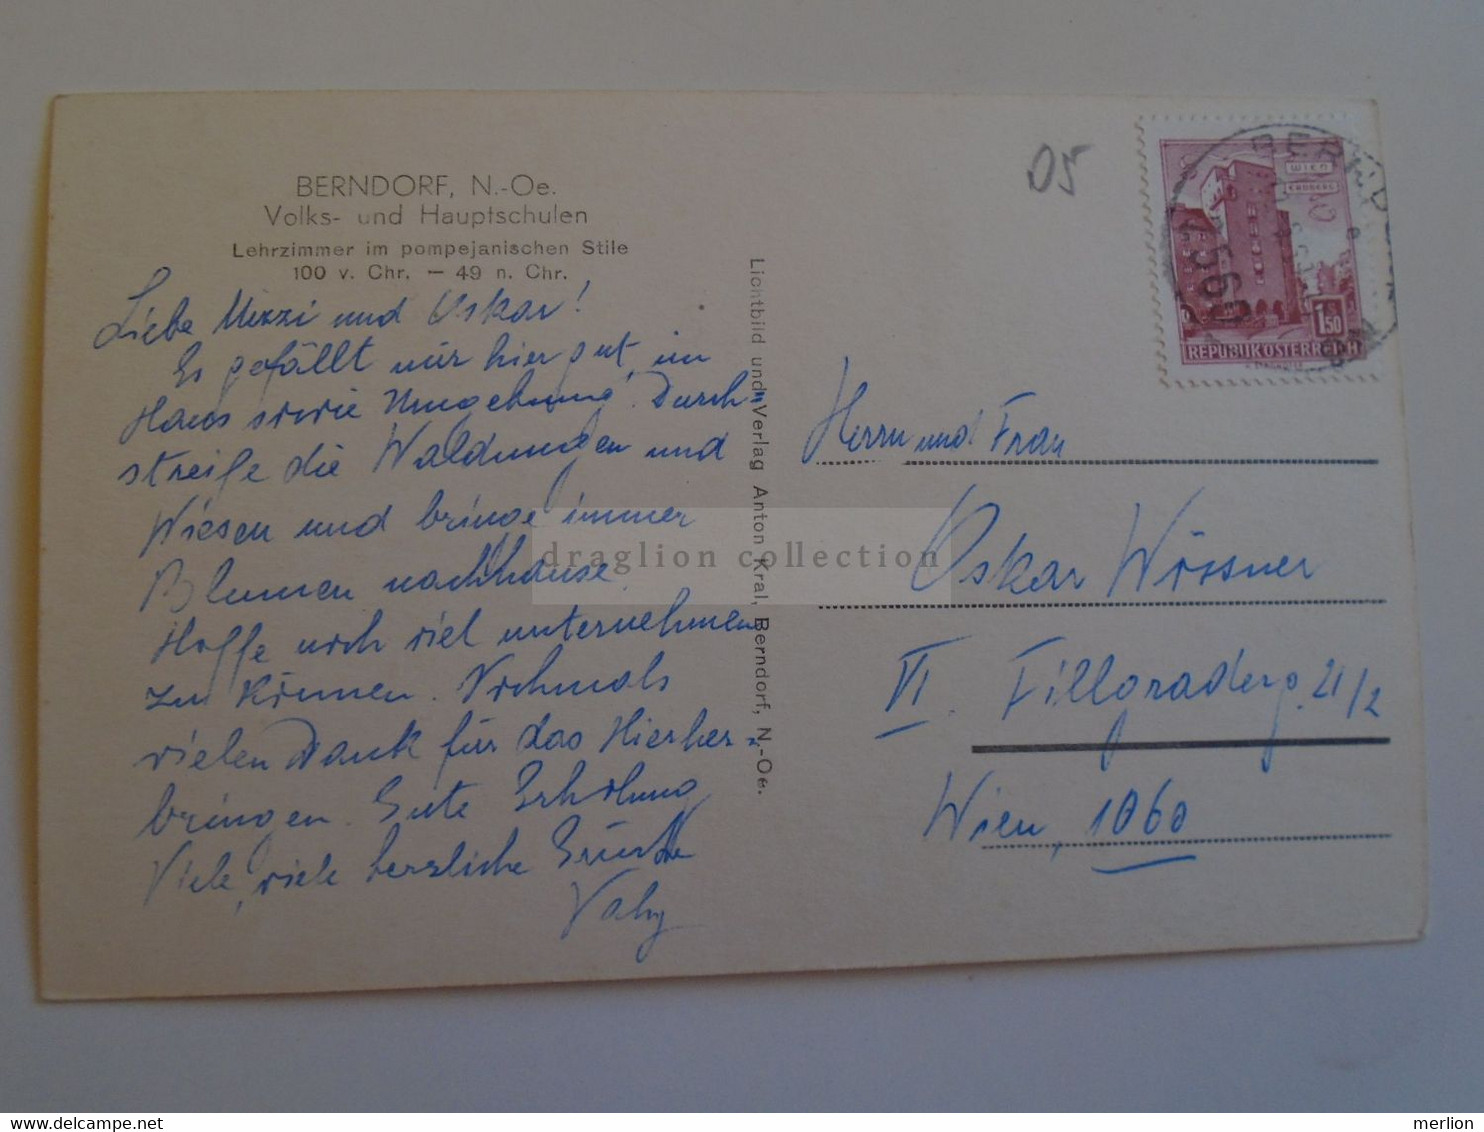 BERNDORF, N.-Oe.
Volks- und Hauptschulen
Lehrzimmer im pompejanischen Stile
100 v. Chr. — 49 n. Chr.
Liebe Mizzi und Oskar!
Es gefällt mir hier gut, im
Haus sowie Umgebung. Durch-
streife die Waldungen und
Wiesen und bringe immer
Blumen nachhause.
Hoffe noch viel unternehmen
zu können. Nochmals
vielen Dank für das Hierher-
bringen. Gute Erholung
Viele, viele herzliche Grüsse
Lichtbild und Verlag Anton Kral, Berndorf, N.-Oe.
05
WIEN
ERDBERG
1.50
REPUBLIK ÖSTERREICH
BERNDORF
2560
Herrn und Frau
Oskar Wössner
VI. Fillgraderg. 21/2
Wien, 1060
draglion collection
delcampe.net
merlion